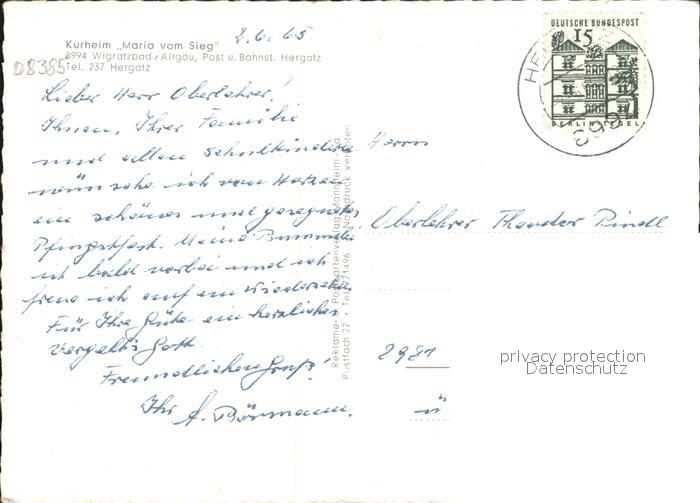 2.6.65
Kurheim „Maria vom Sieg"
8994 Wigratzbad/Allgäu, Post u. Bahnst. Hergatz
Tel. 237 Hergatz
D8385
Lieber Herr Oberlehrer!
Ihnen, Ihrer Familie
und allen Schulkindern
wünsche ich von Herzen
ein schönes und gesegnetes
Pfingstfest. Meine
ist bald vorbei und ich
freue ich auf ein Wiedersehen
Für Ihre Güte ein herzliches
Vergelt's Gott.
Freundlichen Gruß!
Ihr A. Börmann.
Reklame- u. Postkartenverlag Mannheim
Postfach 22 • Tel. 71496 • Nachdruck verboten
DEUTSCHE BUNDESPOST
15
BERLIN TEGEL
HE
8994
Herrn
Oberlehrer Theodor Pindl
8981
privacy protection
Datenschutz
ü